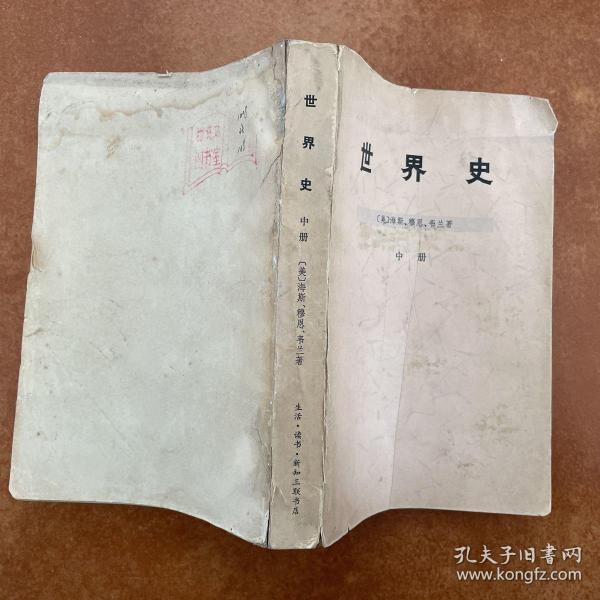 世界史
〔美〕海斯、穆恩、韦兰著
中册
世界史
中册
〔美〕海斯、穆恩、韦兰著
生活·读书·新知三联书店
图书室
孔夫子旧书网
www.kongfz.com